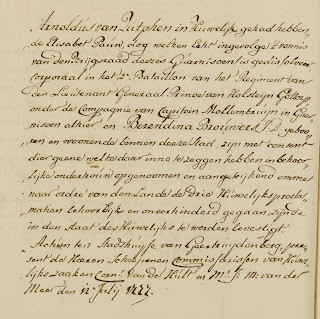 Arnoldus van Zutphen in Huwelijk gehad hebben,
de Elisabet Pauw, dog welken Echt ingevolge 't vonnis
van den Krijgsraad deezes Guarnisoen is gedissolveert
corporaal in het 2e Battaillon van het Regiment van
den Lieutenant Generaal Prince van Holsteyn Gottorp
onder de Compagnie van Capitein Mollenbruijn in Guar,
nisoen alhier en Berendina Brouwers J.D. geboo,
ren en woonende binnen deeze Stad, zijn met consent
dier geene welke daar in no te zeggen hebben in behoor,
lijke ondertrouw opgenoomen en aangetekend omme
naar ordre van den Lande de Drie Huwelijks procla,
matien behoorlijk en onverhinderd gegaan zijnde
in den staat des Huwelijks te werden bevestigt.
Actum ten Stadhuijse van Geertruijdenberg, pre,
sent de Heeren Scheepenen Commissarissen van Huwe,
lijkszaaken Corns. Van de Hult en Mr. J: M: van der
Meer den 12e Julij 1777.